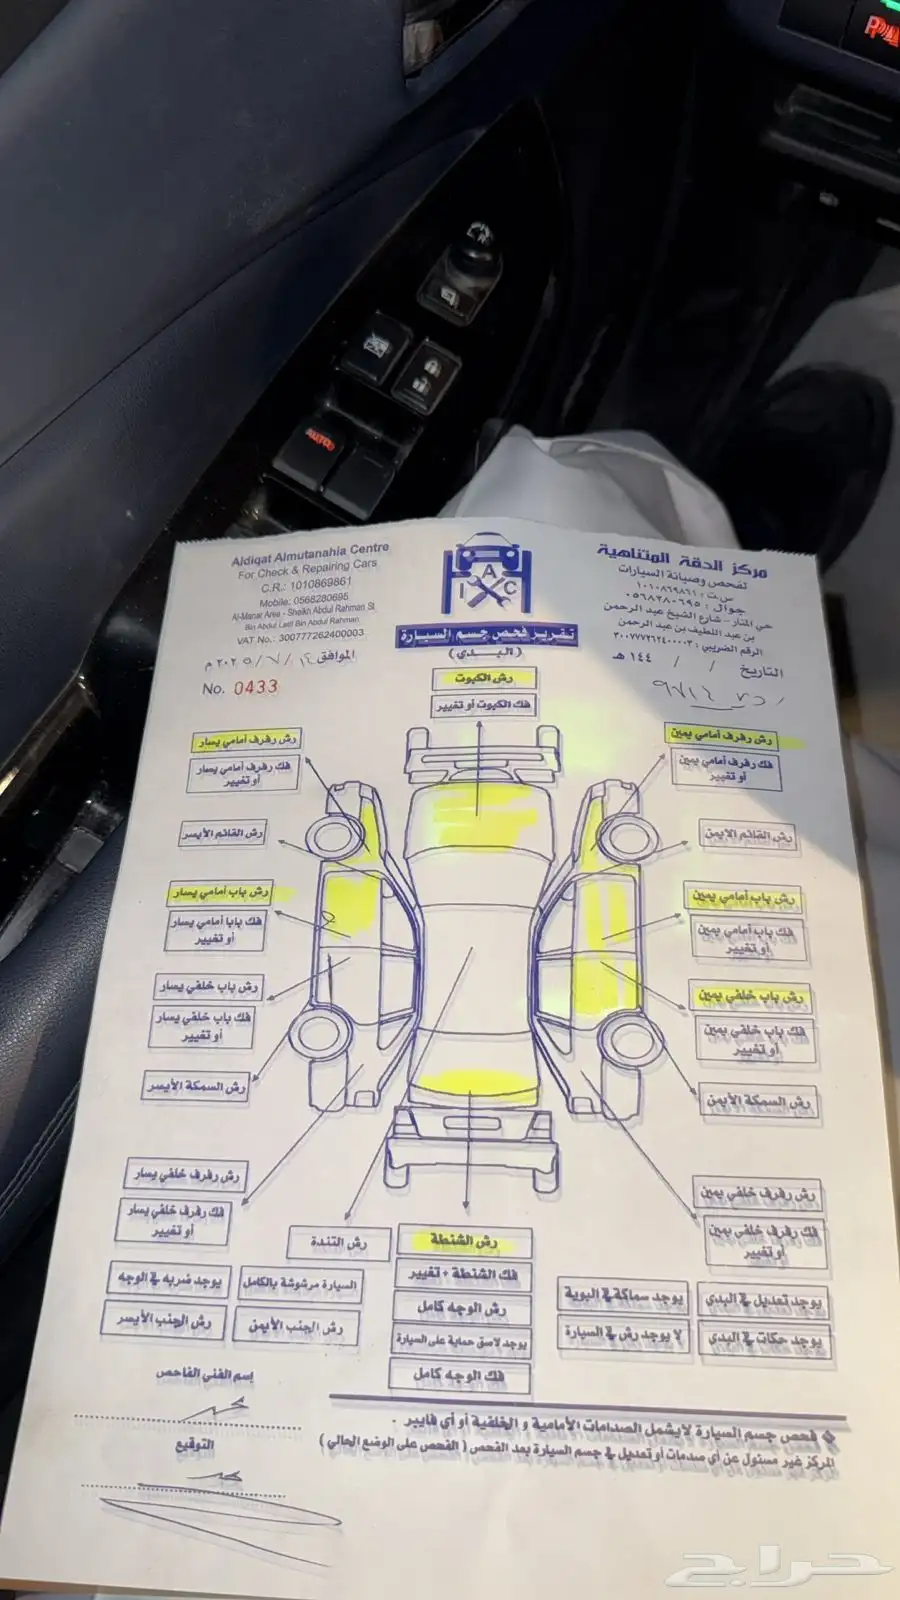 Aldiqat Almutanahia Centre
For Check & Repairing Cars
C.R.: 1010869861
Mobile: 0568280695
Al-Manar Area - Sheikh Abdul Rahman St.
Bin Abdul Latif Bin Abdul Rahman
VAT No.: 300777262400003
الموافق ١٢ / ٧ / ٢٠٢٥ م
No. 0433
I A C
تقرير فحص جسم السيارة
(البدي)
مركز الدقة المتناهية
لفحص وصيانة السيارات
س.ت : ١٠١٠٨٦٩٨٦١
جوال : ٠٥٦٨٢٨٠٦٩٥
حي المنار - شارع الشيخ عبد الرحمن
بن عبد اللطيف بن عبد الرحمن
الرقم الضريبي: ٣٠٠٧٧٧٢٦٢٤٠٠٠٠٣
التاريخ / / ١٤٤ هـ
رش الكبوت
فك الكبوت أو تغيير
رش رفرف أمامي يمين
فك رفرف أمامي يمين
أو تغيير
رش القائم الايمن
رش باب أمامي يمين
فك باب أمامي يمين
أو تغيير
رش باب خلفي يمين
فك باب خلفي يمين
أو تغيير
رش السمكة الأيمن
رش رفرف خلفي يمين
فك رفرف خلفي يمين
أو تغيير
رش رفرف أمامي يسار
فك رفرف أمامي يسار
أو تغيير
رش القائم الأيسر
رش باب أمامي يسار
فك بابا أمامي يسار
أو تغيير
رش باب خلفي يسار
فك باب خلفي يسار
أو تغيير
رش السمكة الأيسر
رش رفرف خلفي يسار
فك رفرف خلفي يسار
أو تغيير
رش الشنطة
رش التندة
فك الشنطة + تغيير
رش الوجه كامل
يوجد لاصق حماية على السيارة
فك الوجه كامل
يوجد تعديل في البدي
يوجد سماكة في البوية
يوجد حكات في البدي
لا يوجد رش في السيارة
السيارة مرشوشة بالكامل
يوجد ضربه في الوجه
رش الجنب الأيمن
رش الجنب الأيسر
إسم الفني الفاحص
التوقيع
فحص جسم السيارة لايشمل الصدامات الأمامية و الخلفية أو أي فايبر .
المركز غير مسئول عن أي صدمات أو تعديل في جسم السيارة بعد الفحص ( الفحص على الوضع الحالي )
AUTO
حراج